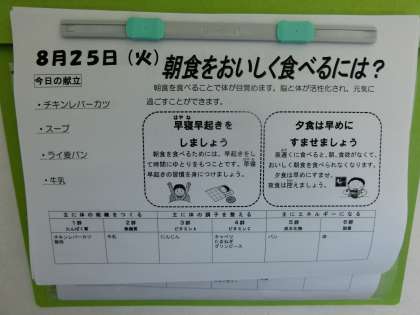 8月25日（火）
朝食をおいしく食べるには？
今日の献立
・チキンレバーカツ
・スープ
・ライ麦パン
・牛乳
朝食を食べることで体が目覚めます。脳と体が活性化され、元気に
過ごすことができます。
はやね
早寝早起きを
しましょう
朝食を食べるためには、早起きをし
て時間にゆとりをもつことです。早寝
早起きの習慣を身につけましょう。
夕食は早めに
すませましょう
夜遅くに食べると、朝、食欲がなくて、
おいしく朝食を食べられなくなります。
夕食は早めにすませ、
夜食は控えましょう。
主に体の組織をつくる
主に体の調子を整える
主にエネルギーになる
1群 2群 3群 4群 5群 6群
たんぱく質 無機質 ビタミンA ビタミンC 炭水化物 脂質
チキンレバーカツ 牛乳 にんじん キャベツ パン 油
たまねぎ
グリンピース